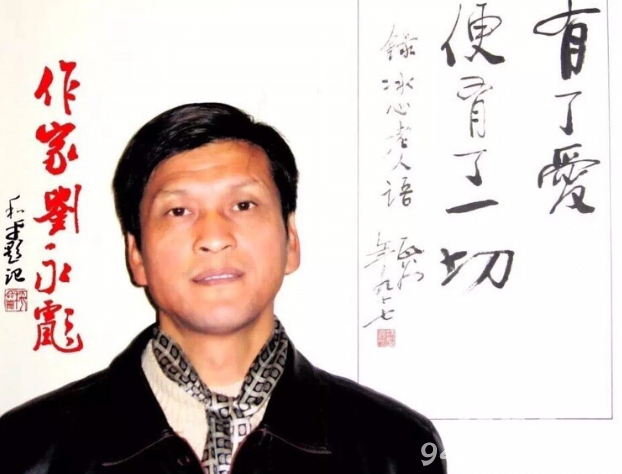 有了愛
便有了一切
錄冰心老人语
年九十七
作家劉永彪
和平题记
94